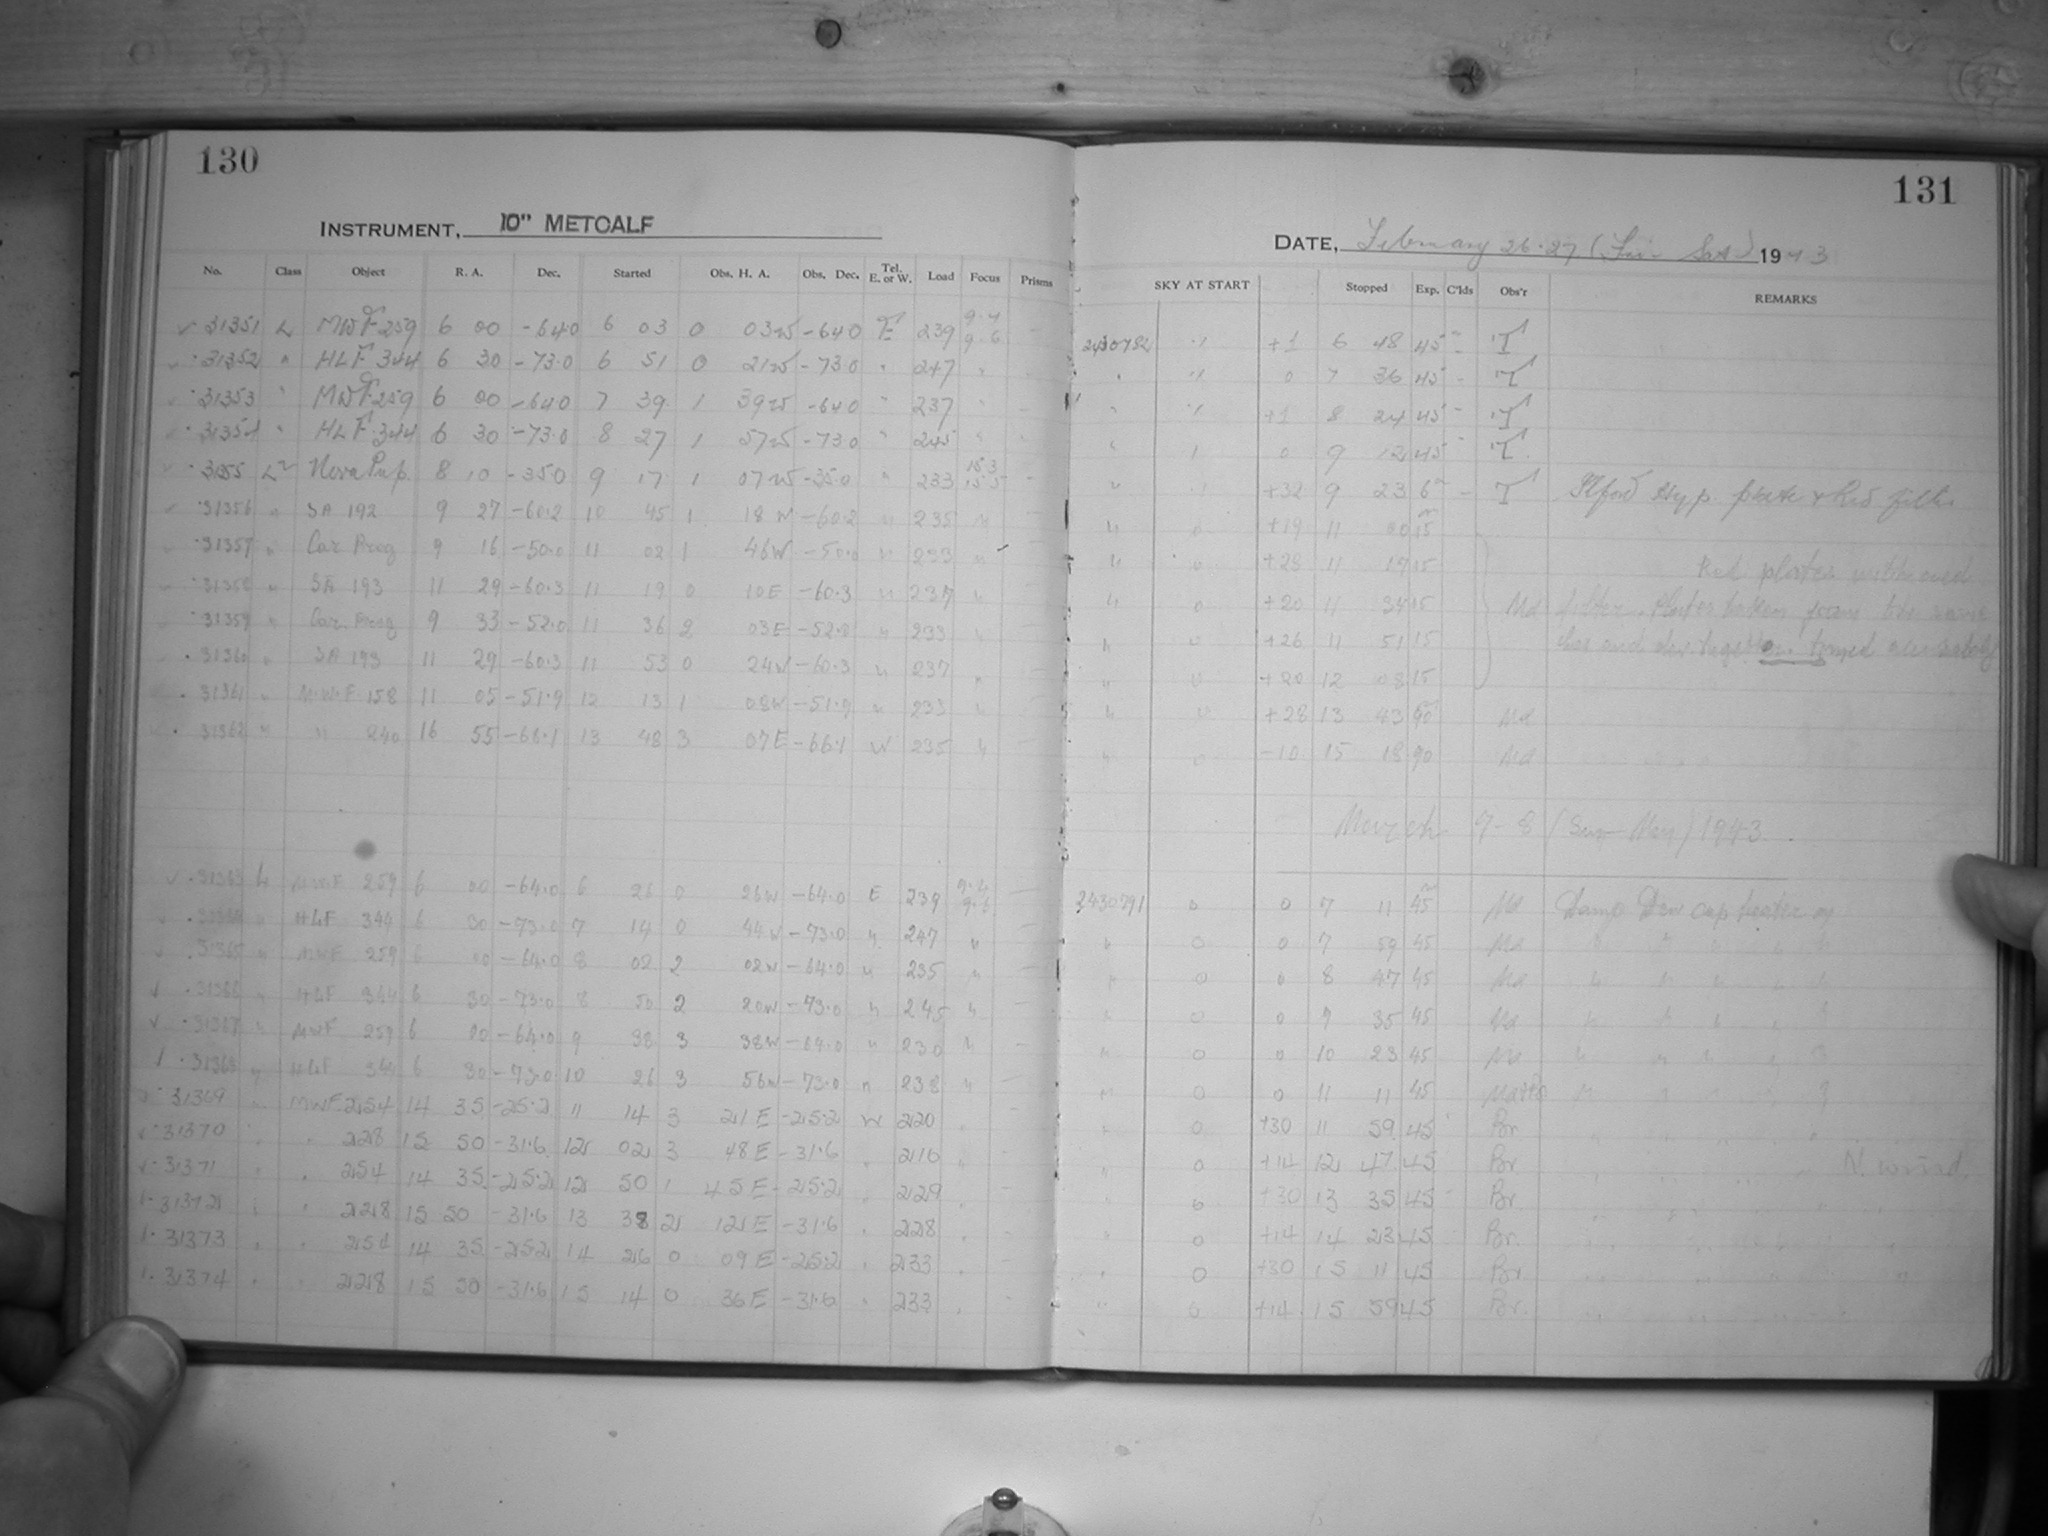 130
INSTRUMENT, 10" METCALF
No. Class Object R. A. Dec. Started Obs. H. A. Obs. Dec. Tel. E. or W. Load Focus Prisms
31351 L MWF 259 6 00 -64.0 6 03 0 03W -64.0 E 239 9.4 9.6
31352 " HLF 344 6 30 -73.0 6 51 0 21W -73.0 " 247 "
31353 " MWF 259 6 00 -64.0 7 39 1 39W -64.0 " 237 "
31354 " HLF 344 6 30 -73.0 8 27 1 57W -73.0 " 245 "
3155 Nova Pup. 8 10 -35.0 9 17 1 07W -35.0 " 233 15.3 15.5
31356 " SA 192 9 27 -60.2 10 45 1 18W -60.2 " 235 "
31357 " Car Prog 9 16 -50.0 11 02 1 46W -50.0 " 233 "
31358 " SA 193 11 29 -60.3 11 19 0 10E -60.3 " 237 "
31359 " Car. Prog 9 33 -52.0 11 36 2 03E -52.0 " 233
31360 " SA 193 11 29 -60.3 11 53 0 24W -60.3 " 237 "
31361 " M.W.F. 158 11 05 -51.9 12 13 1 08W -51.9 " 233 "
31362 " " 240 16 55 -66.1 13 48 3 07E -66.1 W 235 "
31363 L MWF 259 6 00 -64.0 6 26 0 26W -64.0 E 239 9.4 9.6
31364 " HLF 344 6 30 -73.0 7 14 0 44W -73.0 " 247 "
31365 " MWF 259 6 00 -64.0 8 02 2 02W -64.0 " 235 "
31366 " HLF 344 6 30 -73.0 8 50 2 20W -73.0 " 245 "
31367 " MWF 259 6 00 -64.0 9 38 3 38W -64.0 " 230 "
31368 " HLF 344 6 30 -73.0 10 26 3 56W -73.0 " 238 "
31369 " MWF 254 14 35 -25.2 11 14 3 21E -25.2 W 220 "
31370 " " 228 15 50 -31.6 12 02 3 48E -31.6 " 216 "
31371 " " 254 14 35 -25.2 12 50 1 45E -25.2 " 229 "
31372 " " 228 15 50 -31.6 13 38 2 12E -31.6 " 228 "
31373 " " 254 14 35 -25.2 14 26 0 09E -25.2 " 233 "
31374 " " 228 15 50 -31.6 15 14 0 36E -31.6 " 233 "
131
DATE, February 26-27 ( Sat) 1943
SKY AT START Stopped Exp. C'lds Obs'r REMARKS
2430782 +1 6 48 45 T
" 0 7 36 45 T
" +1 8 24 45 T
" 1 0 9 12 45 T
" +32 9 23 6 T Ilford Hyp. plate & Red filter
" 0 +19 11 00 15
" 0 +28 11 17 15 Red plates
" 0 +20 11 34 15 Md filter. Plates taken from the same
" 0 +26 11 51 15
" 0 +20 12 08 15
" 0 +28 13 43 90 Md
" 0 -10 15 18 90 Md
March 7-8 (Sun-Mon) 1943.
2430791 0 0 7 11 45 Md Damp Dew cap heater on
" 0 0 7 59 45 Md " " " " "
" 0 0 8 47 45 Md " " " " "
" 0 0 9 35 45 Md " " " " "
" 0 0 10 23 45 Md " " " " "
" 0 0 11 11 45 " " " " "
" 0 +30 11 59 45 Br
" 0 +14 12 47 45 Br N. wind.
" 0 +30 13 35 45 Br
" 0 +14 14 23 45 Br.
" 0 +30 15 11 45 Br
" 0 +14 15 59 45 Br.